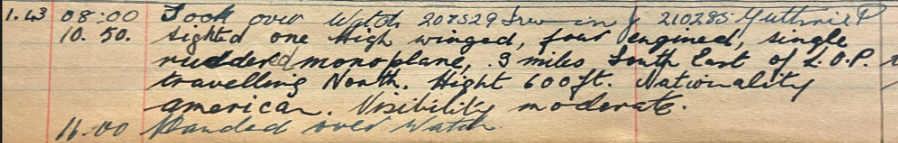 1.43 08:00 Took over Watch 207529 Irwin & 210285 Guthrie P
10. 50. Sighted one High winged, four engined, single
ruddered monoplane, 3 miles South East of L.O.P.
travelling North. Hight 600ft. Nationality
american. Visibility moderate.
11.00 Handed over Watch.